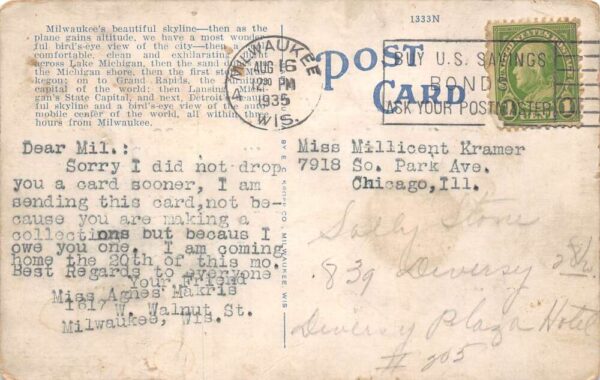 Milwaukee's beautiful skyline—then as the
plane gains altitude, we have a most wonder-
ful bird's-eye view of the city—then a
comfortable, clean and exhilarating flight
across Lake Michigan, then the sand
the Michigan shore, then the first stop
kegon; on to Grand Rapids, the furniture
capital of the world: then Lansing, Michi-
gan's State Capital, and next, Detroit's beauti-
ful skyline and a bird's-eye view of the auto-
mobile center of the world, all within
hours from Milwaukee.
1333N
MILWAUKEE
AUG 16
PM
1935
WIS.
POST
CARD
BUY U.S. SAVINGS
BONDS
ASK YOUR POSTMASTER
1 1
Dear Mil.:
Sorry I did not drop
you a card sooner, I am
sending this card,not be-
cause you are making a
collections but becaus I
owe you one. I am coming
home the 20th of this mo.
Best Regards to everyone
Your Friend
Miss Agnes Makris
1617 W. Walnut St.
Milwaukee, Wis.
E. C. KROPP CO., MILWAUKEE, WIS.
Miss Millicent Kramer
7918 So. Park Ave.
Chicago,Ill.
Sally Stone
839 Diversy
Diversy Plaza Hotel
# 205